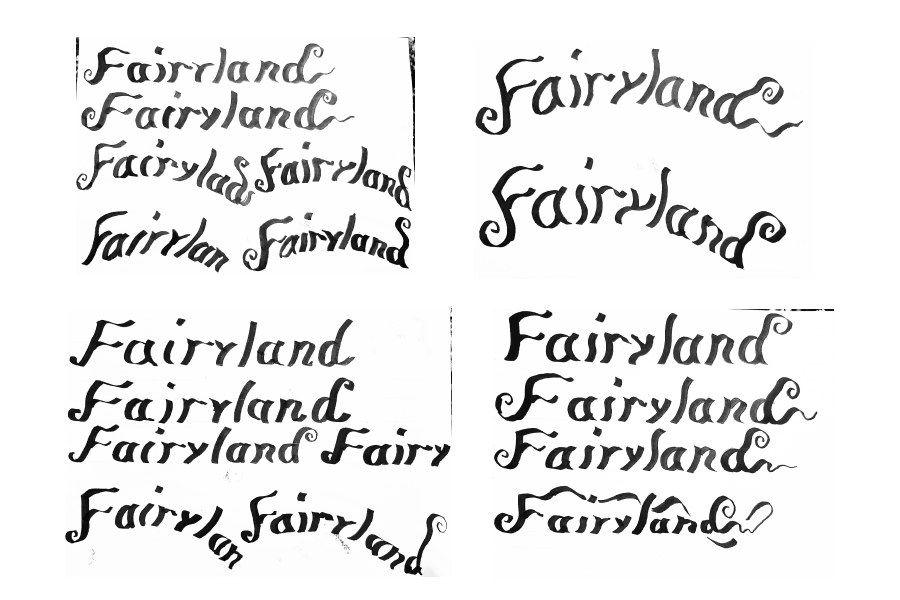 Fairyland
Fairyland
Fairylad Fairyland
Fairylan Fairyland
Fairyland
Fairyland
Fairyland
Fairyland
Fairyland Fairy
Fairylan Fairyland
Fairyland
Fairyland
Fairyland
Fairyland